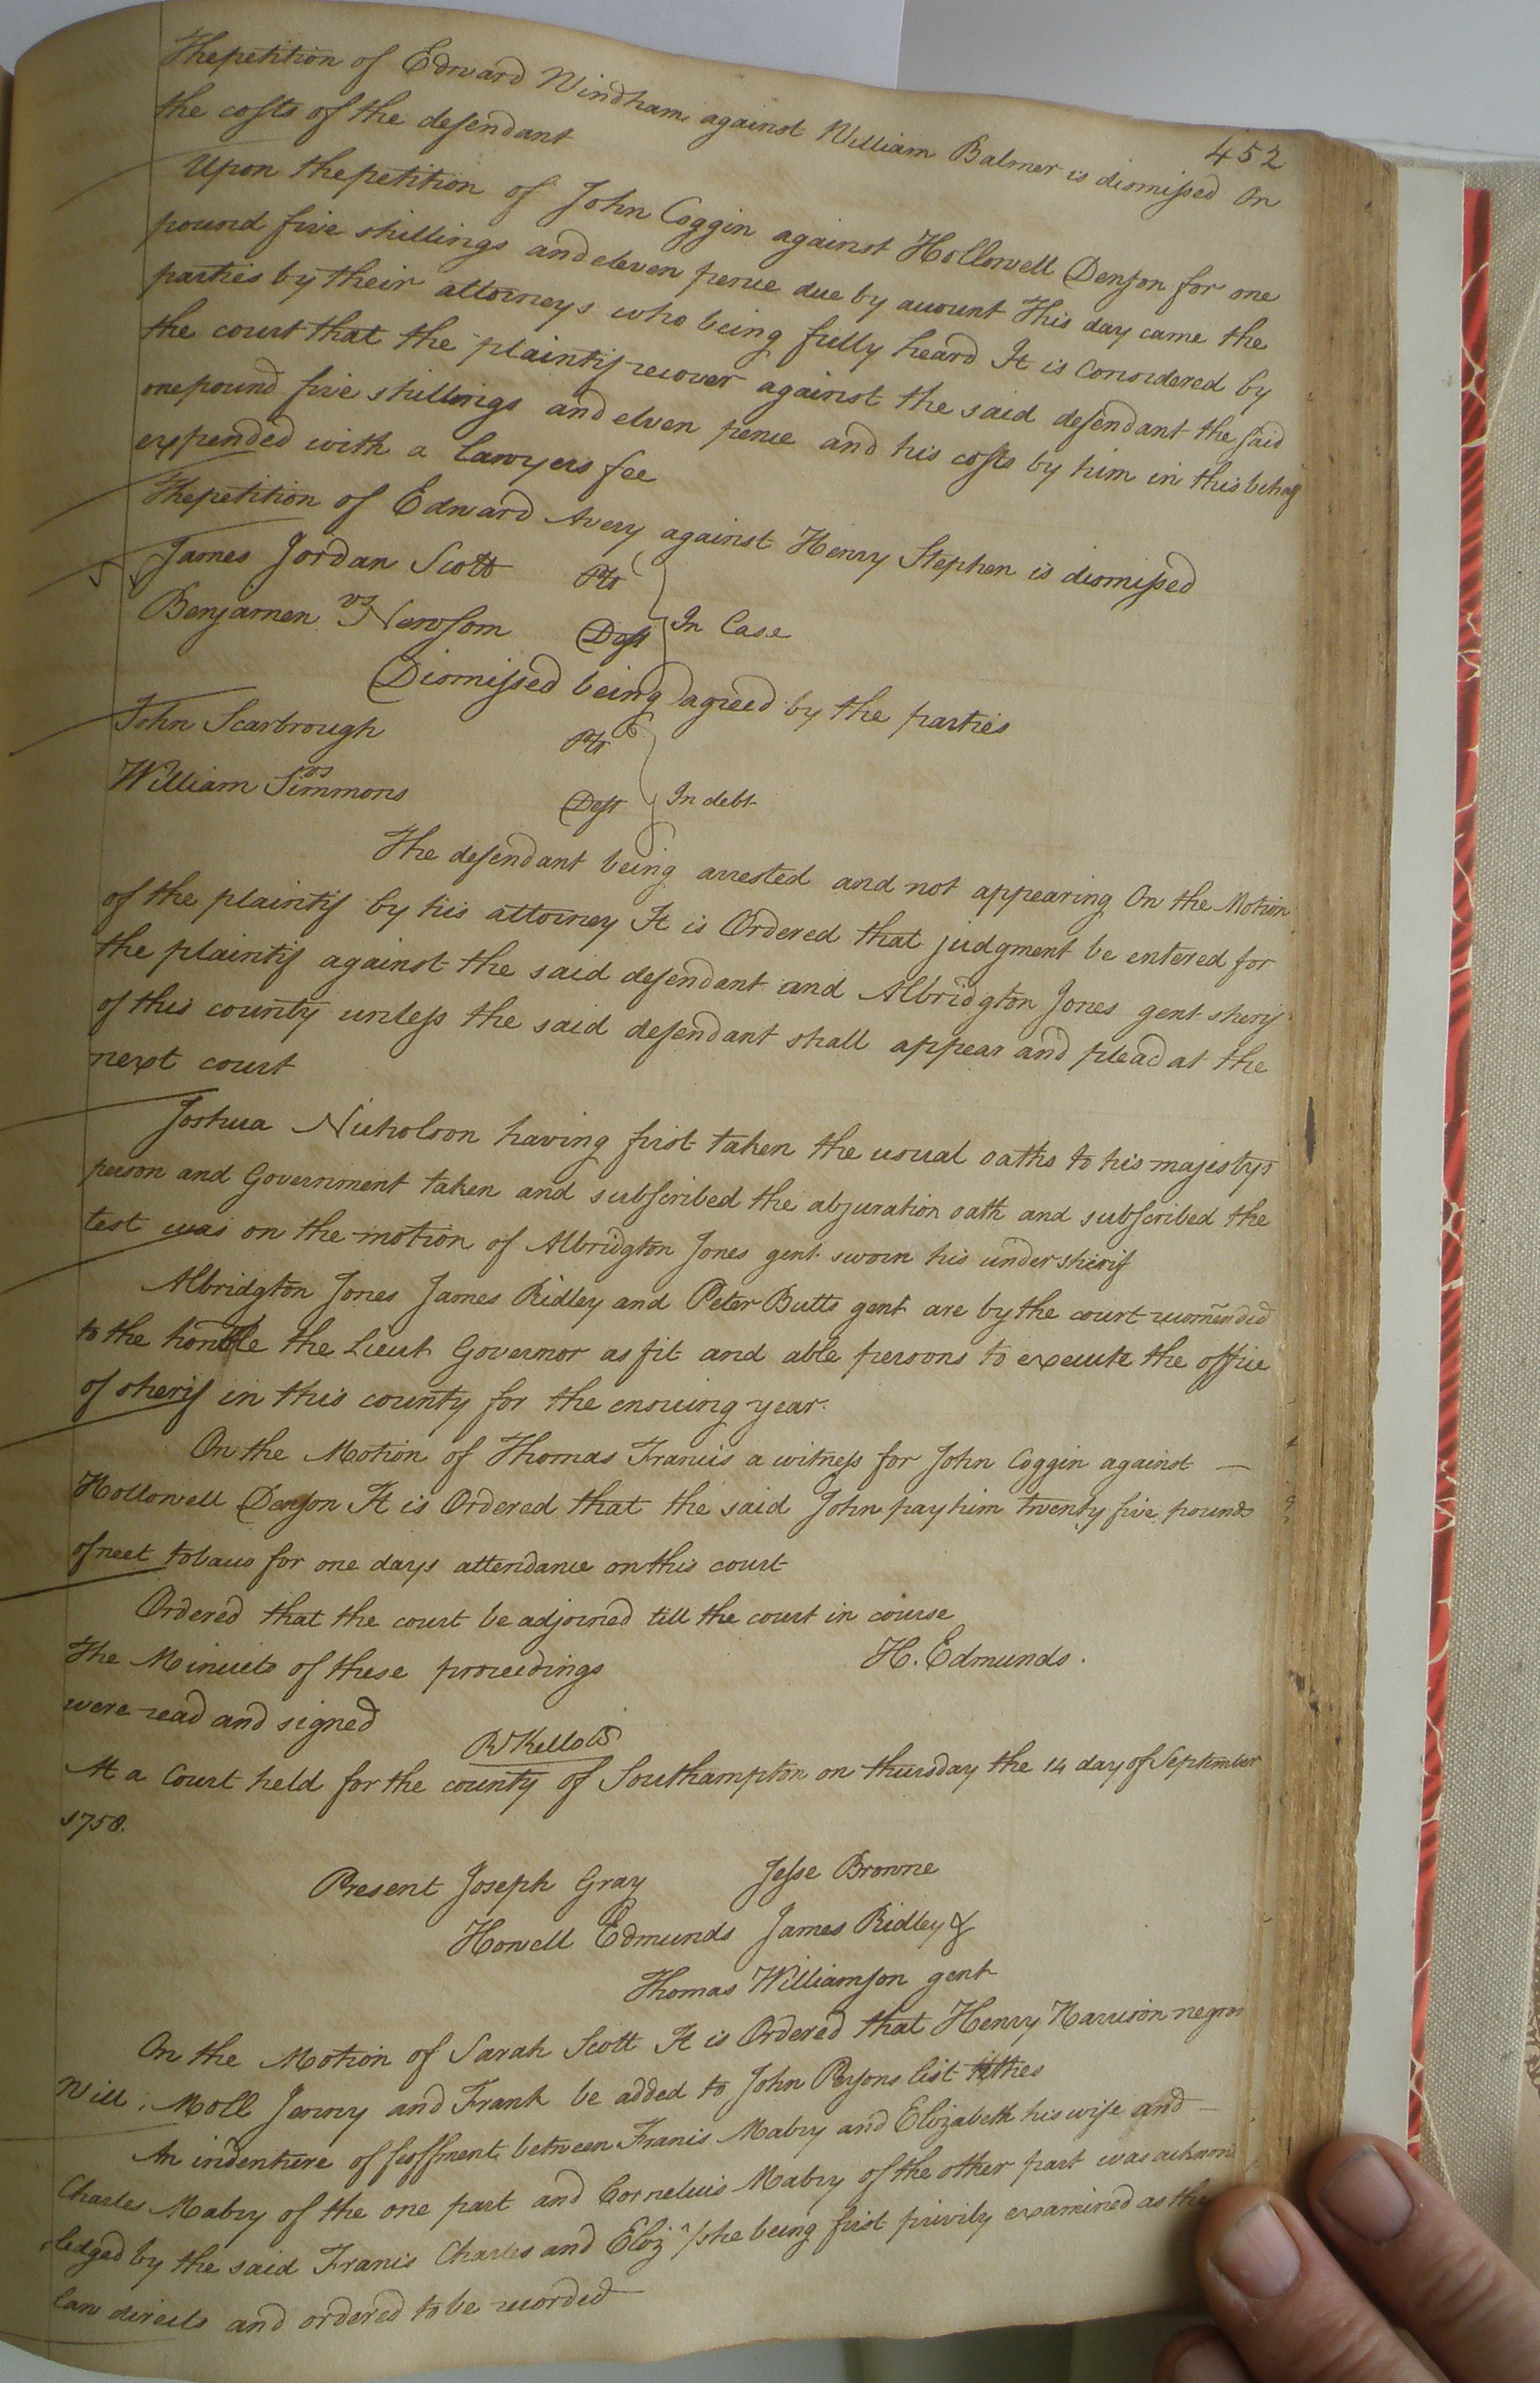 452
Thepetition of Edward Windham against William Balmer is dismissed On
the costs of the defendant
Upon thepetition of John Coggin against Hollowell Denson for one
pound five shillings and eleven pence due by account This day came the
parties by their attorneys who being fully heard It is Considered by
the court that the plaintif recover against the said defendant the said
onepound five shillings and elven pence and his costs by him in this behalf
expended with a lawyers fee
Thepetition of Edward Avery against Henry Stephen is dismissed
James Jordan Scott Plt
vs In Case
Benjamen Newsom Deft
Dismissed being agreed by the parties
John Scarbrough Plt
vs In debt
William Simmons Deft
The defendant being arrested and not appearing On the Motion
of the plaintif by his attorney It is Ordered that judgment be entered for
the plaintif against the said defendant and Albridgton Jones gent sherif
of this county unless the said defendant shall appear and plead at the
next court
Joshua Nicholson having first taken the usual oaths to his majestys
person and Government taken and subscribed the abjuration oath and subscribed the
test was on the motion of Albridgton Jones gent sworn his undersherif
Albridgton Jones James Ridley and Peter Butts gent are by the court recomended
to the honble the Lieut Governor as fit and able persons to execute the office
of sherif in this county for the ensuing year.
On the Motion of Thomas Francis a witness for John Coggin against
Hollowell Denson It is Ordered that the said John pay him twenty five pounds
of neet tobacco for one days attendance on this court
Ordered that the court be adjorned till the court in course
The Minuets of these proceedings H. Edmunds.
were read and signed
R Kello
At a Court held for the county of Southampton on thursday the 14 day of September
1758.
Present Joseph Gray Jesse Browne
Howell Edmunds James Ridley &
Thomas Williamson gent
On the Motion of Sarah Scott It is Ordered that Henry Harrison negros
Will Moll Jenny and Frank be added to John Persons list tithes
An indenture of feoffment between Francis Mabry and Elizabeth his wife and
Charles Mabry of the one part and Cornelius Mabry of the other part was acknow
ledged by the said Francis Charles and Eliz<sup>a</sup> she being first privily examined as the
Law directs and ordered to be recorded